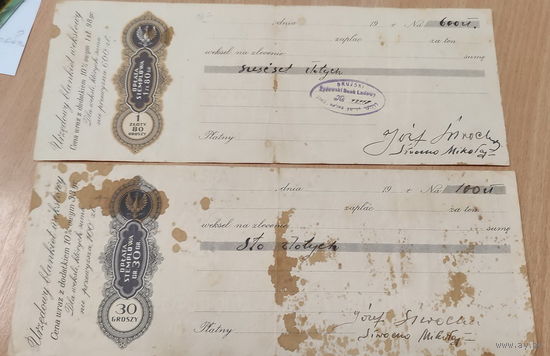 Urzędowy blankiet wekslowy
Cena wraz z dodatkiem 10%-owym 1 zł. 98 gr.
Dla weksli, których suma
nie przewyższa 600 zł.
OPŁATA
STEMPLOWA
1 ZŁ 80 GR
1
ZŁOTY
80
GROSZY
dnia 19 r. Na 600 zł.
zapłac za ten
weksel na zlecenie sumę
sześćset złotych
Żydowski Bank Ludowy
Płatny
Józef
Mikołaj
Urzędowy blankiet wekslowy
Cena wraz z dodatkiem 10%-owym 33 gr.
Dla weksli, których suma
nie przewyższa 100 zł.
OPŁATA
STEMPLOWA
GR 30 GR
30
GROSZY
dnia 19 r. Na 100 zł
zapłac za ten
weksel na zlecenie sumę
Sto złotych
Płatny
Józef
Mikołaj
www.ay.by